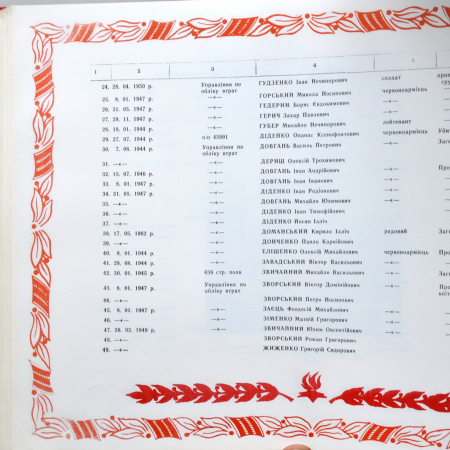 1 2 3 4 5
24. 28. 04. 1950 р. Управління по обліку втрат ГУДЗЕНКО Іван Нечипорович солдат
25. 8. 01. 1947 р. —«— ГОРСЬКИЙ Микола Йосипович червоноармієць
26. 31. 05. 1947 р. —«— ГЕДЕРИМ Борис Евдокимович —«—
27. 29. 11. 1947 р. —«— ГЕРИЧ Захар Павлович —«—
28. 18. 01. 1944 р. —«— ГУБЕР Михайло Нечипорович лейтенант
29. 27. 07. 1944 р. п/п 65991 ДІДЕНКО Опанас Ксенофонтович червоноармієць
30. 7. 08. 1944 р. Управління по обліку втрат ДОВГАНЬ Василь Петрович —«—
31. —«— ДЕРИШ Олексій Трохимович
32. 15. 07. 1946 р. —«— ДОВГАНЬ Іван Андрійович —«—
33. 8. 01. 1947 р. —«— ДОВГАНЬ Іван Іванович —«—
34. 31. 05. 1947 р. —«— ДІДЕНКО Іван Родіонович —«—
35. —«— ДОВГАНЬ Михайло Юхимович —«—
36. —«— ДІДЕНКО Іван Тимофійович
37. —«— ДІДЕНКО Йосип Ілліч
38. 17. 05. 1962 р. —«— ДОМАНСЬКИЙ Кирило Ілліч рядовий
39. —«— ДОНЧЕНКО Павло Корнійович
40. 8. 08. 1944 р. —«— ЕЛІШЕНКО Олексій Михайлович червоноармієць
41. 28. 08. 1944 р. —«— ЗАВАДСЬКИЙ Віктор Васильович —«—
42. 30. 01. 1945 р. 636 стр. полк ЗВИЧАЙНИЙ Михайло Васильович —«—
43. 8. 01. 1947 р. Управління по обліку втрат ЗВОРСЬКИЙ Віктор Домінійович —«—
44. —«— ЗВОРСЬКИЙ Петро Йосипович
45. 8. 01. 1947 р. —«— ЗАЄЦЬ Феодосій Михайлович —«—
46. —«— —«— ЗІМЕНКО Матвій Григорович —«—
47. 26. 03. 1949 р. —«— ЗВИЧАЙНИЙ Юхим Оксентійович —«—
48. —«— ЗВОРСЬКИЙ Роман Григорович
49. —«— ЖИЖЕНКО Григорій Сидорович